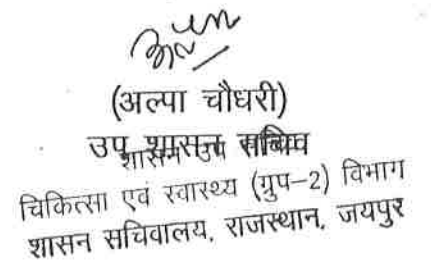 (अल्पा चौधरी)
उप शासन सचिव
शासन उप सचिव
चिकित्सा एवं स्वास्थ्य (ग्रुप–2) विभाग
शासन सचिवालय, राजस्थान, जयपुर